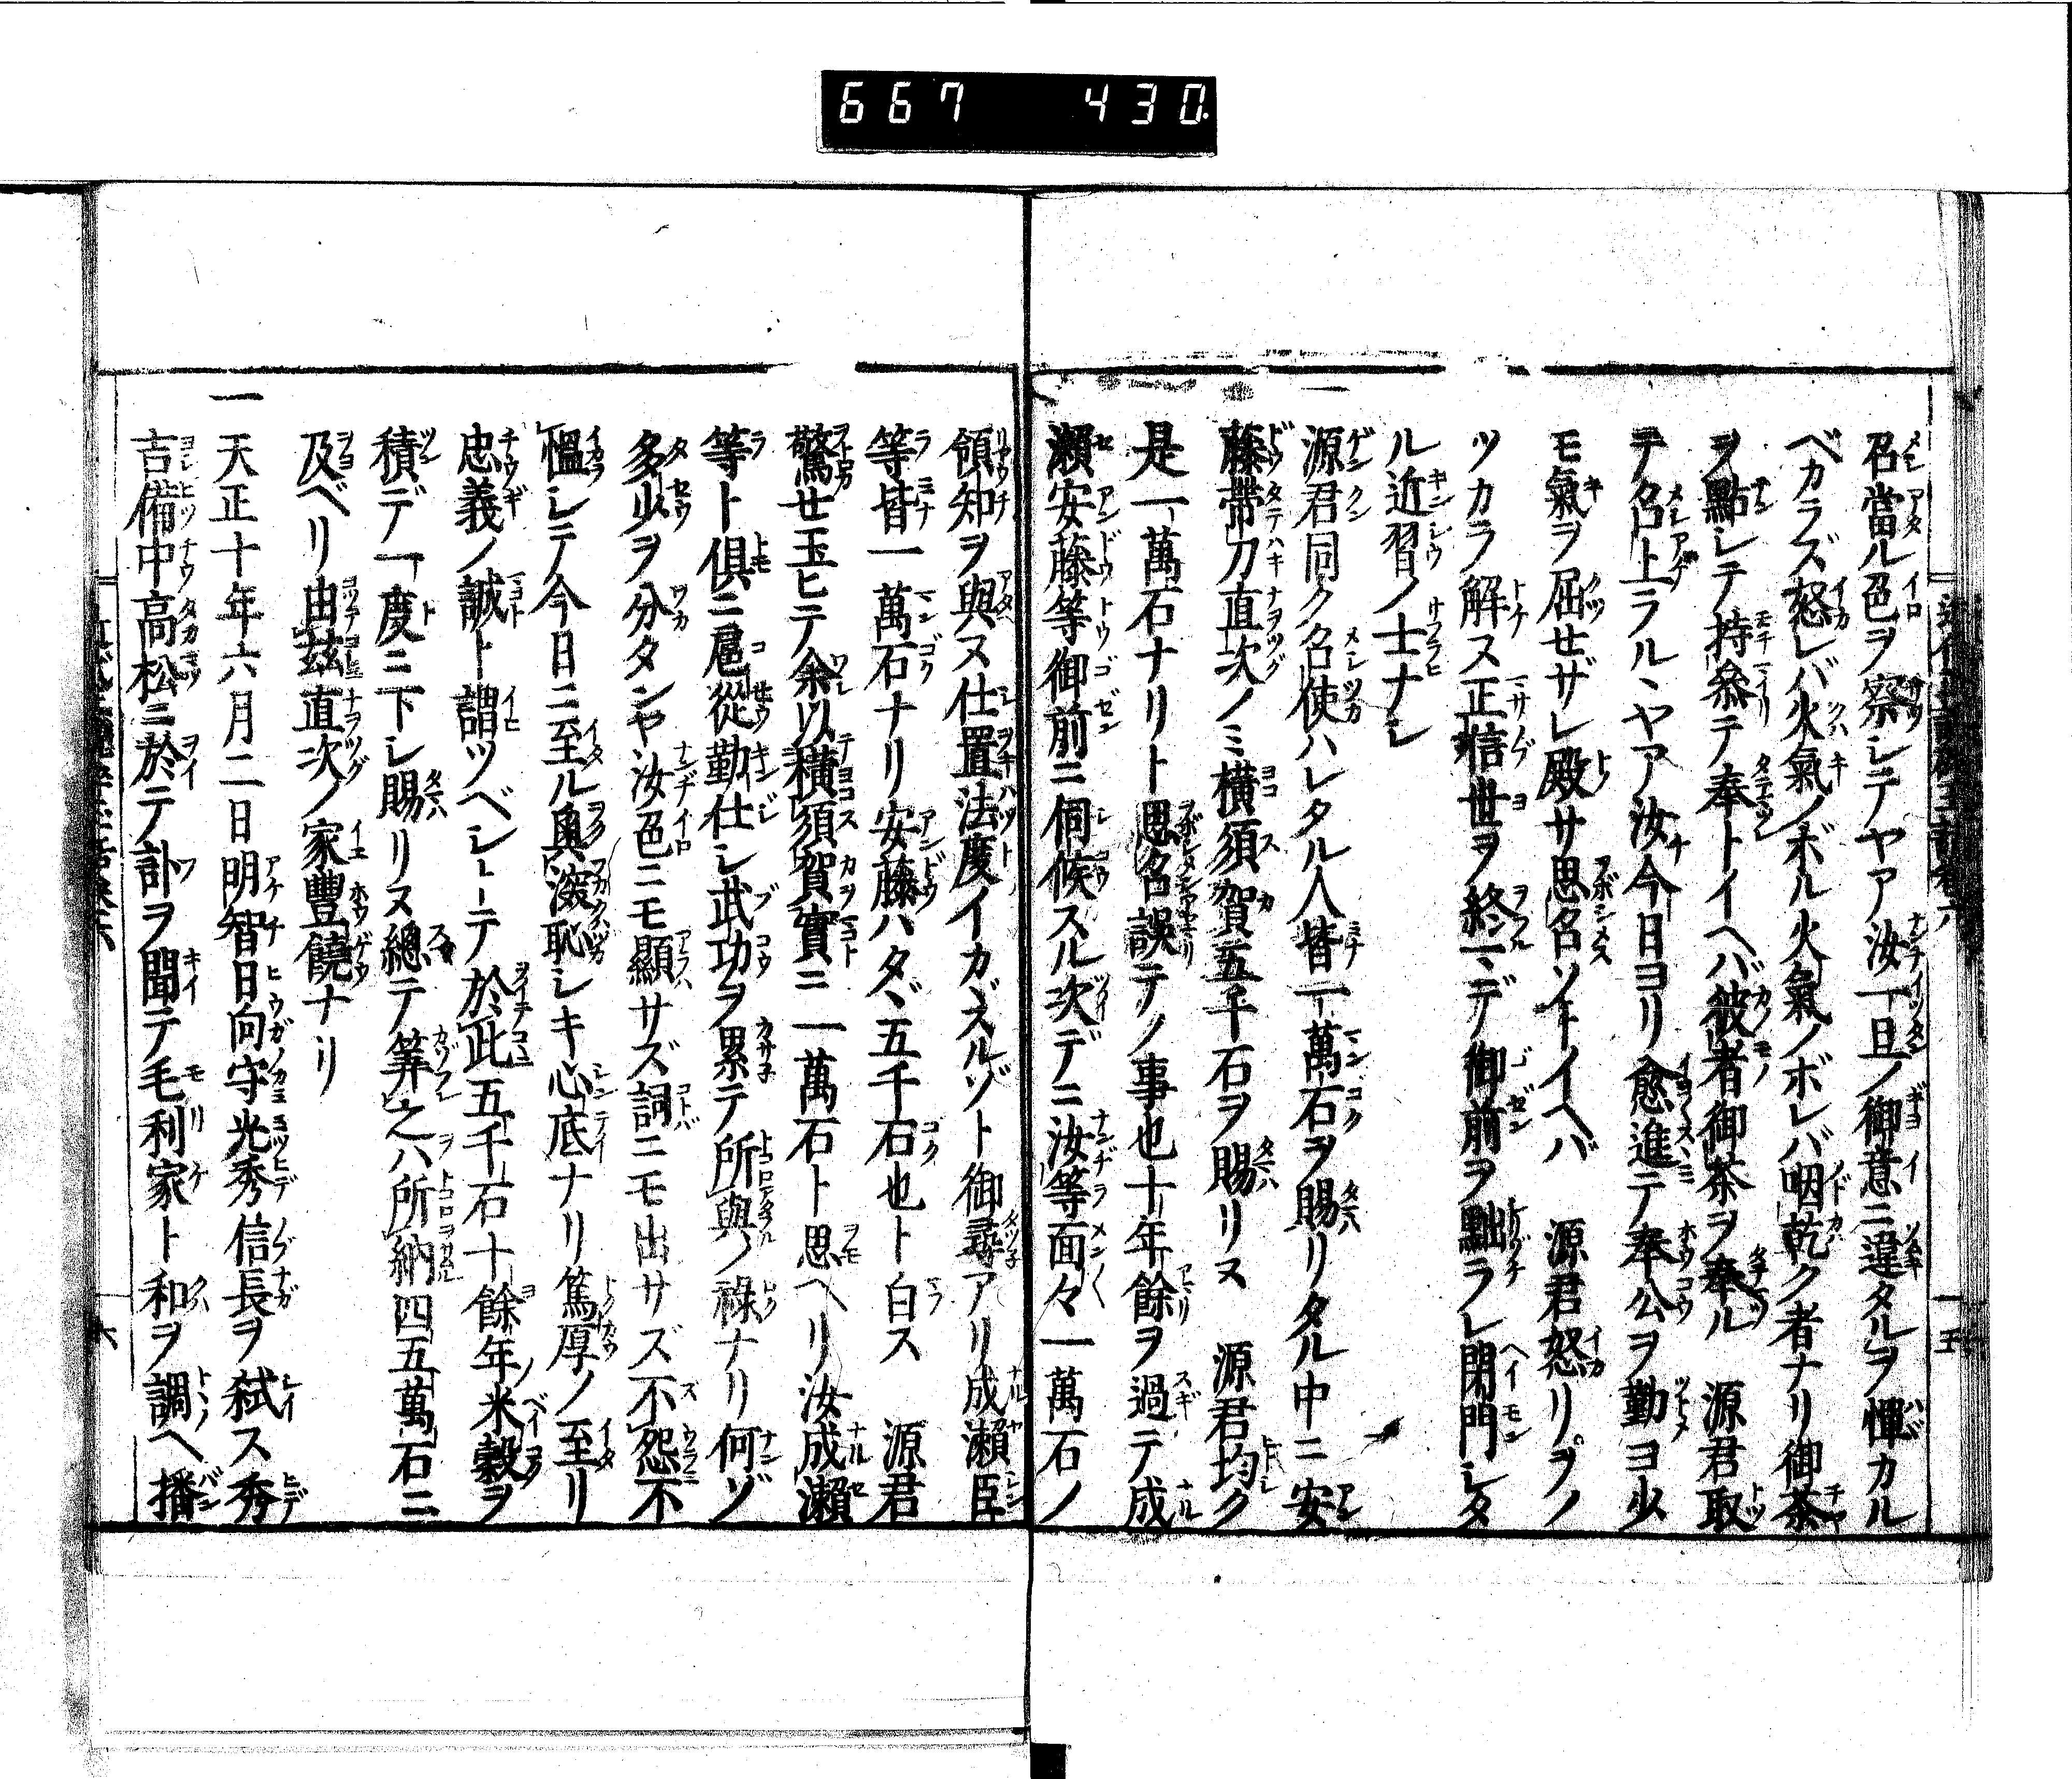 667 430
召當ル色ヲ察シテヤア汝一旦ノ御意ニ違タルヲ憚カル
ベカラズ怒レバ火氣ノボル火氣ノボレバ咽乾ク者ナリ御茶
ヲ點シテ持參テ奉トイヘバ彼者御茶ヲ奉ル 源君取
テ召上ラルヽヤア汝今日ヨリ愈進テ奉公ヲ勤ヨ少
モ氣ヲ屈セザレ殿サ思召ソトイヘバ 源君怒リヲノ
ツカラ解ス正信世ヲ終マデ御前ヲ黜ラレ閉門シタ
ル近習ノ士ナシ
一源君同ク召使ハレタル人皆一萬石ヲ賜リタル中ニ安
藤帶刀直次ノミ横須賀五千石ヲ賜リヌ 源君均ク
是一萬石ナリト思召誤テノ事也十年餘ヲ過テ成
瀬安藤等御前ニ伺候スル次デニ汝等面々一萬石ノ
領知ヲ與ヌ仕置法度イカヾスルゾト御尋アリ成瀬臣
等皆一萬石ナリ安藤ハタヾ五千石也ト白ス 源君
驚せ玉ヒテ余以横須賀實ニ一萬石ト思ヘリ汝成瀬
等ト俱ニ扈從勤仕シ武功ヲ累テ所與ノ祿ナリ何ゾ
多少ヲ分タンヤ汝色ニモ顯サズ詞ニモ出サズ不怨不
慍シテ今日ニ至ル奥深恥シキ心底ナリ篤厚ノ至リ
忠義ノ誠ト謂ツベシトテ於此五千石十餘年ノ米穀ヲ
積デ一度ニ下シ賜リヌ總テ筭之八所納四五萬石ニ
及ベリ由茲直次ノ家豐饒ナリ
一天正十年六月二日明智日向守光秀信長ヲ弑ス秀
吉備中高松ニ於テ訃ヲ聞テ毛利家ト和ヲ調ヘ播
六